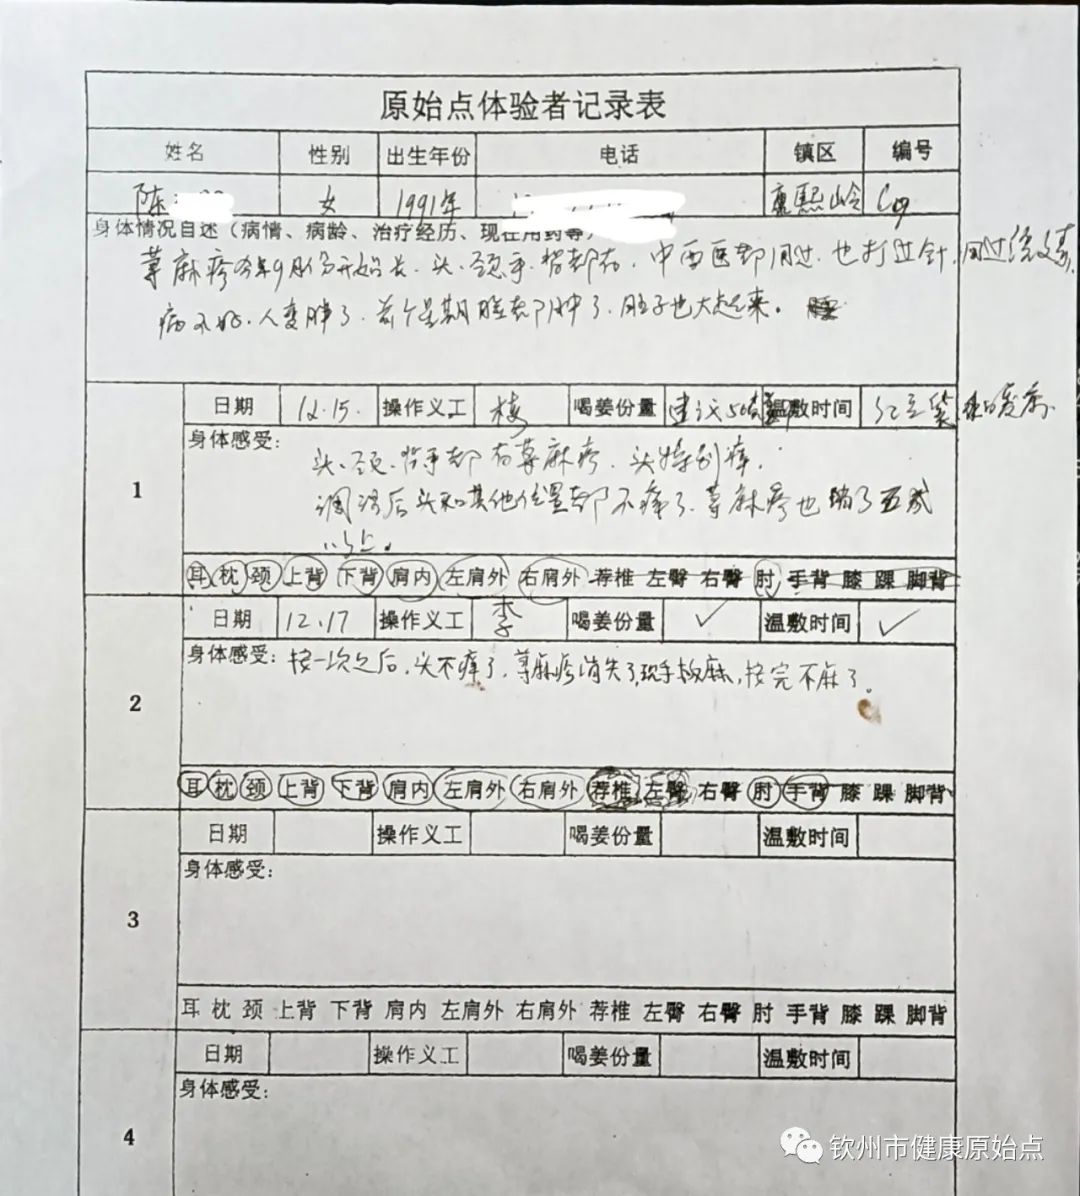 原始点体验者记录表
姓名 性别 出生年份 电话 镇区 编号
陈 女 1991年 康熙岭
身体情况自述（病情、病龄、治疗经历、现在用药等）
荨麻疹今年9月份开始长、头、颈、手、背都有，中西医都用过，也打过针，用过
病不好，人变胖了，前个星期脸都肿了，肚子也大起来。
1
日期 12.15. 操作义工 梅 喝姜份量 建议50 温敷时间 红豆袋
身体感受：
头、颈、背手都有荨麻疹，头特别痒，
调理后头和其他位置都不痒了，荨麻疹也消了五成
以上。
耳 枕 颈 上背 下背 肩内 左肩外 右肩外 荐椎 左臀 右臀 肘 手背 膝 踝 脚背
2
日期 12.17 操作义工 李 喝姜份量 ✓ 温敷时间 ✓
身体感受：按一次之后，头不痒了，荨麻疹消失了，现手板麻，按完不麻了。
耳 枕 颈 上背 下背 肩内 左肩外 右肩外 荐椎 左臀 右臀 肘 手背 膝 踝 脚背
3
日期 操作义工 喝姜份量 温敷时间
身体感受：
耳 枕 颈 上背 下背 肩内 左肩外 右肩外 荐椎 左臀 右臀 肘 手背 膝 踝 脚背
4
日期 操作义工 喝姜份量 温敷时间
身体感受：
钦州市健康原始点